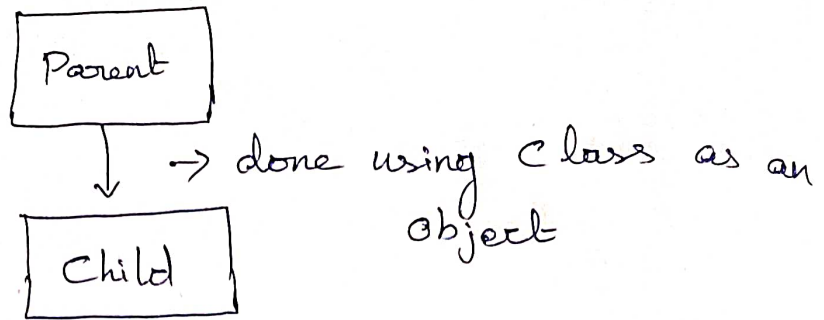 Parent
→ done using Class as an
object
Child